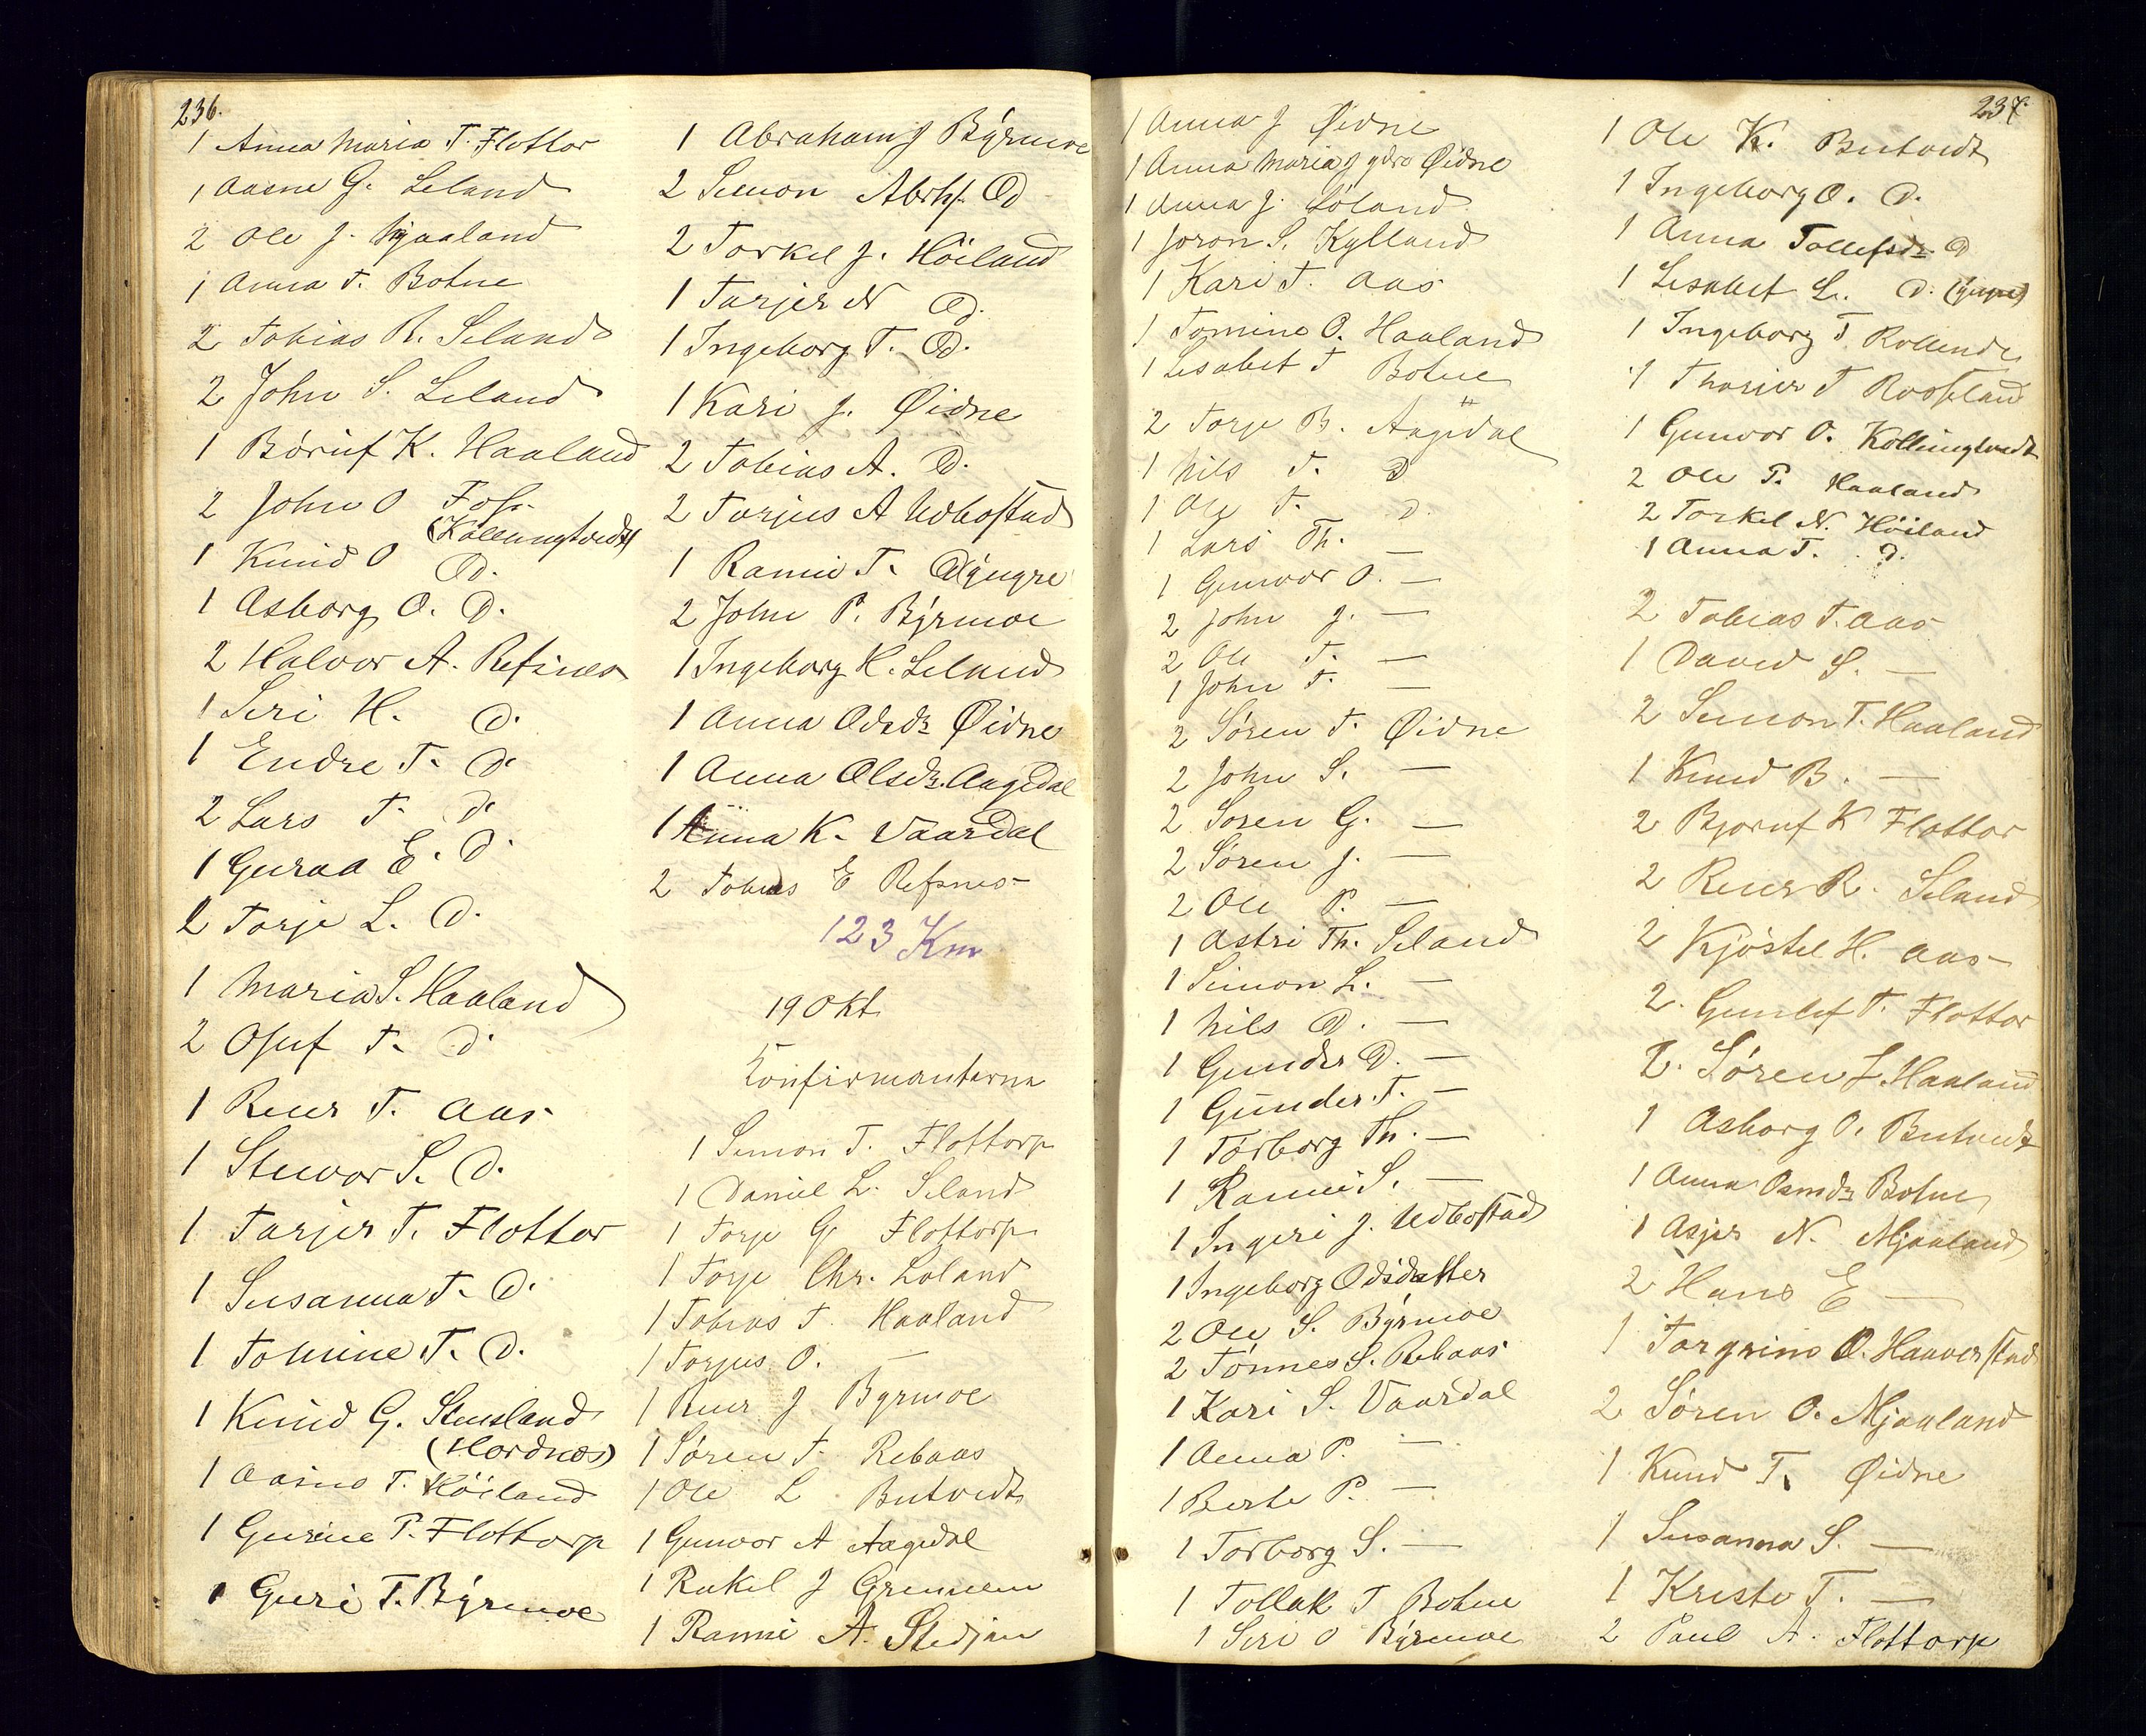 236.
1 Anna Maria T. Flottor
1 Aasne G. Leland
2 Ole J. Mjaaland
1 Anna T. Botne
2 Tobias R. Seland
2 John S. Leland
1 Börüf K. Haaland
2 John O Foss
(Kollungtvedt)
1 Knüd O D.
1 Asborg O. D.
2 Halvor A. Refsnes
1 Seri H. D.
1 Endre T. D.
2 Lars T. D.
1 Guraa E. D.
2 Torje L. D.
1 Maria S. Haaland
2 Osuf T. D.
1 Reier T. Aas
1 Stuvor S. D.
1 Tarjer T. Flottor
1 Susanna T. D.
1 Tomine T. D.
1 Knüd G. Stensland
(Hordnes)
1 Aasne T. Höiland
1 Gurine P. Flottorp
1 Guri T. Byrmoe
1 Abraham J Byrmoe
2 Simon Abrhs. D
2 Torkel J. Höiland
1 Tarjer N D.
1 Ingeborg T. D.
1 Kari J. Øidne
2 Tobias A. D.
2 Torjus A Udbostad
1 Rannei T. Dyngre
2 John P. Byrmoe
1 Ingeborg H. Leland
1 Anna Odsdr Øidne
1 Anna Olsdr. Aagedal
1 Anna K. Vaardal
2 Tobias E Refsnes
123 Km
19 Okt
Konfirmanterne
1 Simon T. Flottorp
1 Daniel L. Seland
1 Torje G Flottorp
1 Torje Chr. Loland
1 Tobias T. Haaland
1 Torjus O. —
1 Reier J Byrmoe
1 Sören T. Rebaas
1 Ole L Butvedt
1 Gunvor A Aagedal
1 Rakel J Grennem
1 Ranni A. Stedjan
1 Anna J Øidne
1 Anna Maria J ydre Øidne
1 Anna J. Löland
1 Joron S. Kylland
1 Kari T. Aas
1 Tomine O. Haaland
1 Lisabet T Botne
2 Torje B. Aagedal
1 Nils T. D
1 Ole T. D.
1 Lars Th. —
1 Gunvor O. —
2 John J. —
2 Ole T. —
1 John T. —
2 Sören T. Øidne
2 John S. —
2 Soren G. —
2 Sören J. —
2 Ole P. —
1 Astri Th. Seland
1 Simon L. —
1 Nils D. —
1 Gunder D. —
1 Günder T. —
1 Torborg Th. —
1 Rannei S. —
1 Ingeri J. Udbostad
1 Ingeborg Odsdatter
2 Ole S. Byrmoe
2 Tönnes S. Rebaas
1 Kari S. Vaardal
1 Anna P. —
1 Berte P. —
1 Torborg S. —
1 Tollak T Botne
1 Seri O Byrmoe
237.
1 Ole K. Butvedt
1 Ingeborg O. D.
1 Anna Tollefsdr. D
1 Lisabet L. D.
1 Ingeborg T
1 Tharier T Rossland
1 Gunvor O. Kollungtvedt
2 Ole P. Haaland
2 Torkel N. Höiland
1 Anna T. D.
2 Tobias T. Aas
1 David S. —
2 Simon T. Haaland
1 Knud B. —
2 Bjoruf K Flottor
2 Reier R. Seland
2 Kjöstel H. Aas
2. Gunlef T. Flottor
2. Sören L. Haaland
1 Asborg O. Butvedt
1 Anna Osmdr Botne
1 Asjer N. Mjaaland
2 Hans E —
1 Torgrims O. Haaverstad
2 Sören O. Mjaaland
1 Knud T. Øidne
1 Susanna S. —
1 Kristo T. —
2 Paul A. Flottorp